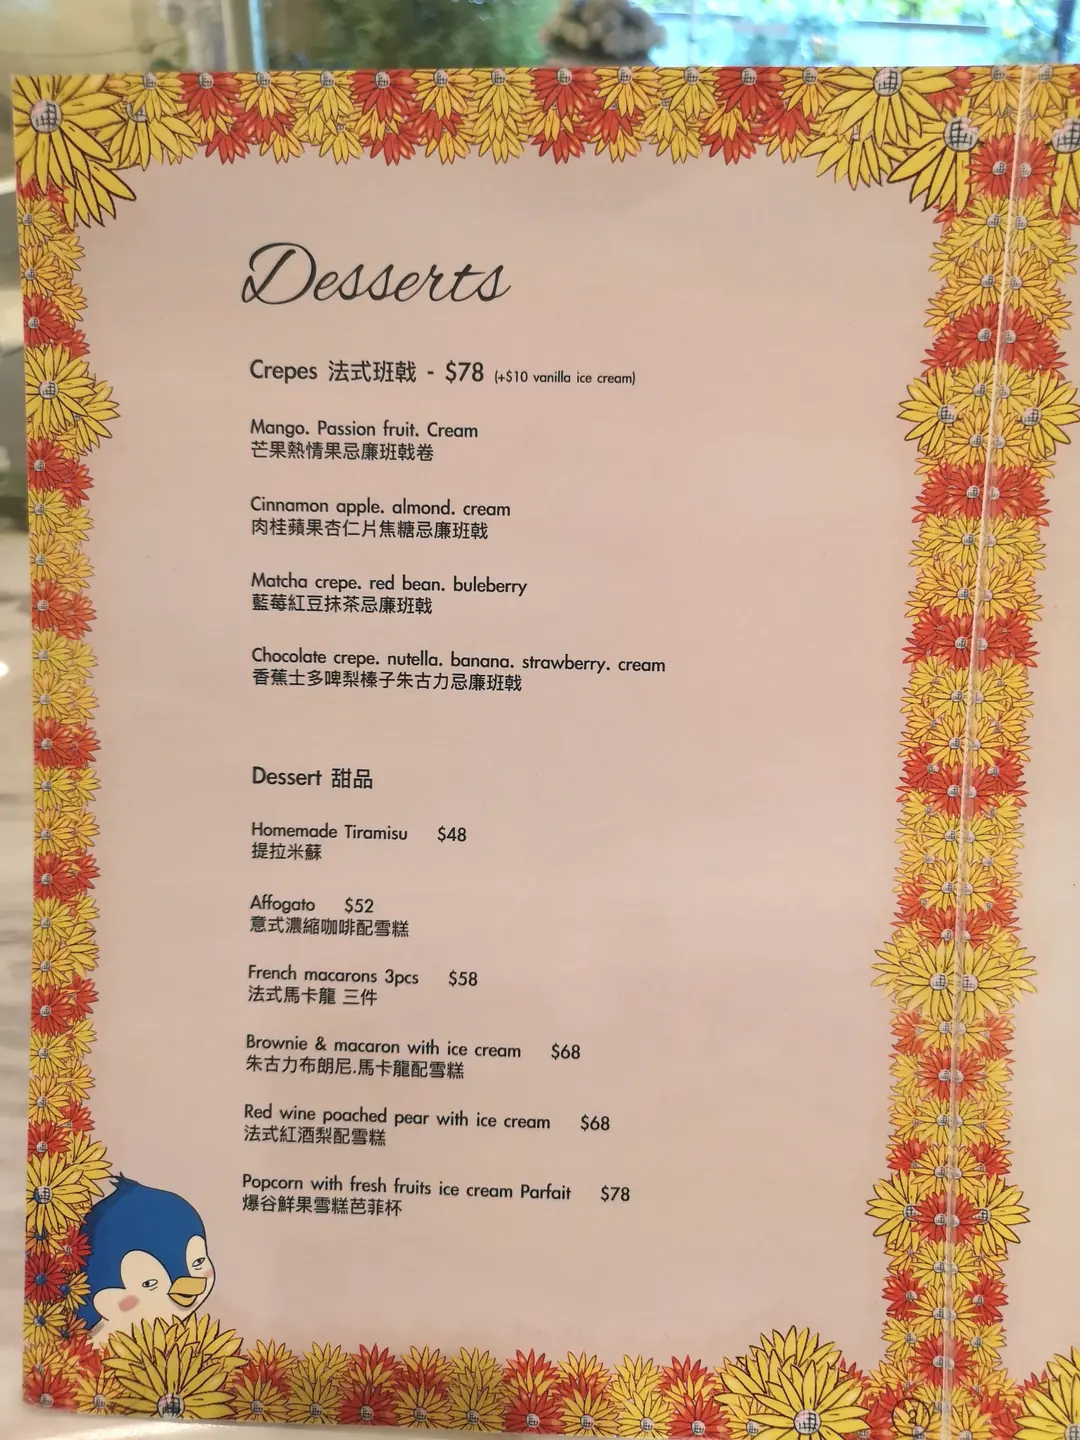 Desserts
Crepes 法式班戟 - $78 (+$10 vanilla ice cream)
Mango. Passion fruit. Cream
芒果熱情果忌廉班戟卷
Cinnamon apple. almond. cream
肉桂蘋果杏仁片焦糖忌廉班戟
Matcha crepe. red bean. buleberry
藍莓紅豆抹茶忌廉班戟
Chocolate crepe. nutella. banana. strawberry. cream
香蕉士多啤梨榛子朱古力忌廉班戟
Dessert 甜品
Homemade Tiramisu $48
提拉米蘇
Affogato $52
意式濃縮咖啡配雪糕
French macarons 3pcs $58
法式馬卡龍 三件
Brownie & macaron with ice cream $68
朱古力布朗尼.馬卡龍配雪糕
Red wine poached pear with ice cream $68
法式紅酒梨配雪糕
Popcorn with fresh fruits ice cream Parfait $78
爆谷鮮果雪糕芭菲杯